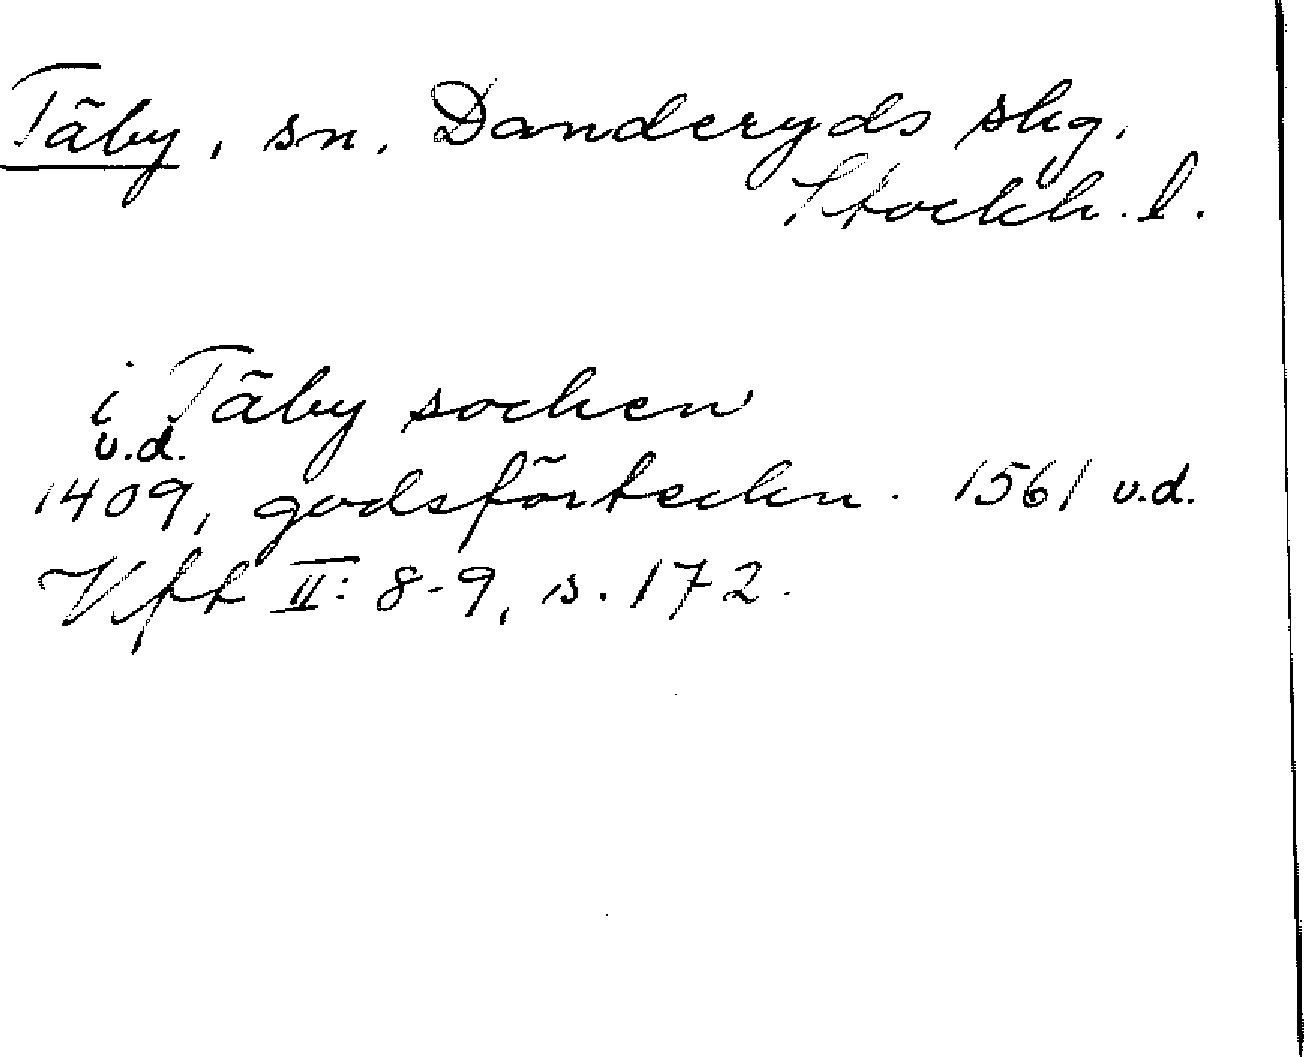 Täby, sn, Danderyds skg.
Stockh. l.
i Täby socken
u.d.
1409, godsförteckn. 1561 u.d.
Vff II: 8-9, s. 172.